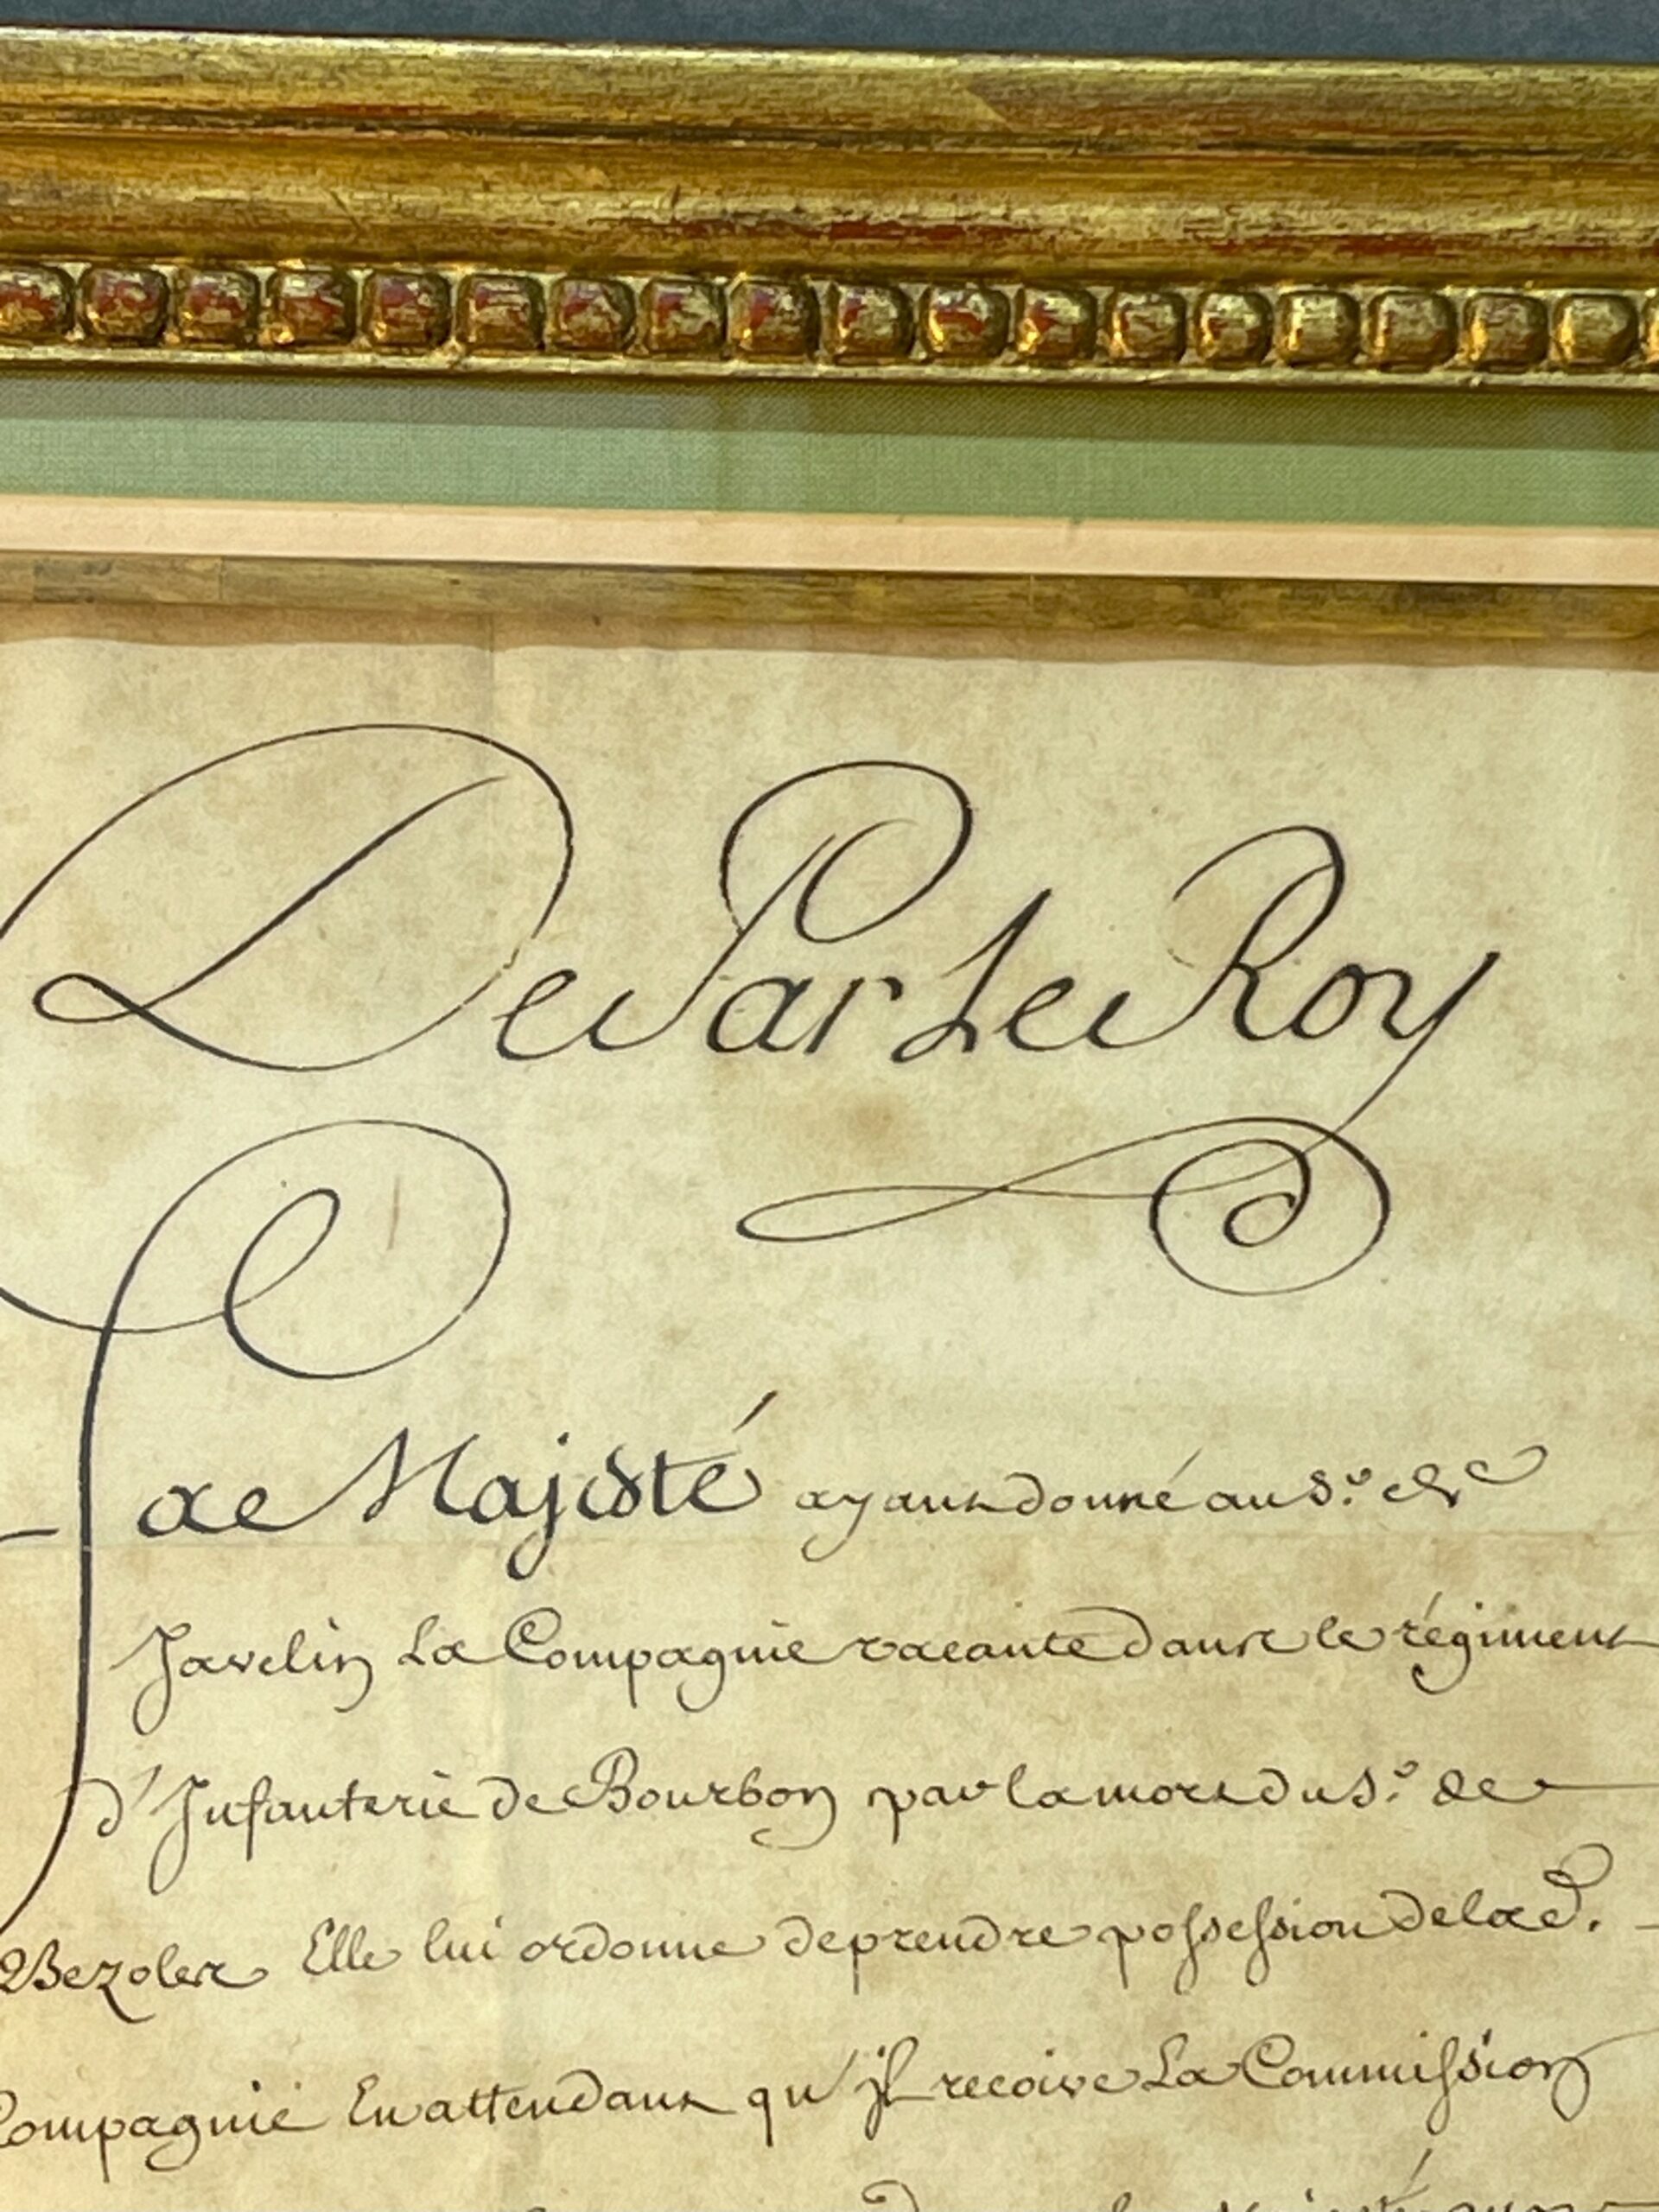 De Par Le Roy
Sa Majesté ayant donné au S.r de
Javelin La Compagnie vacante dans le régiment
d'Infanterie de Bourbon par la mort du S.r de
Bezoles Elle lui ordonne de prendre possession de lad.
Compagnie En attendant qu'jl recoive La Commission